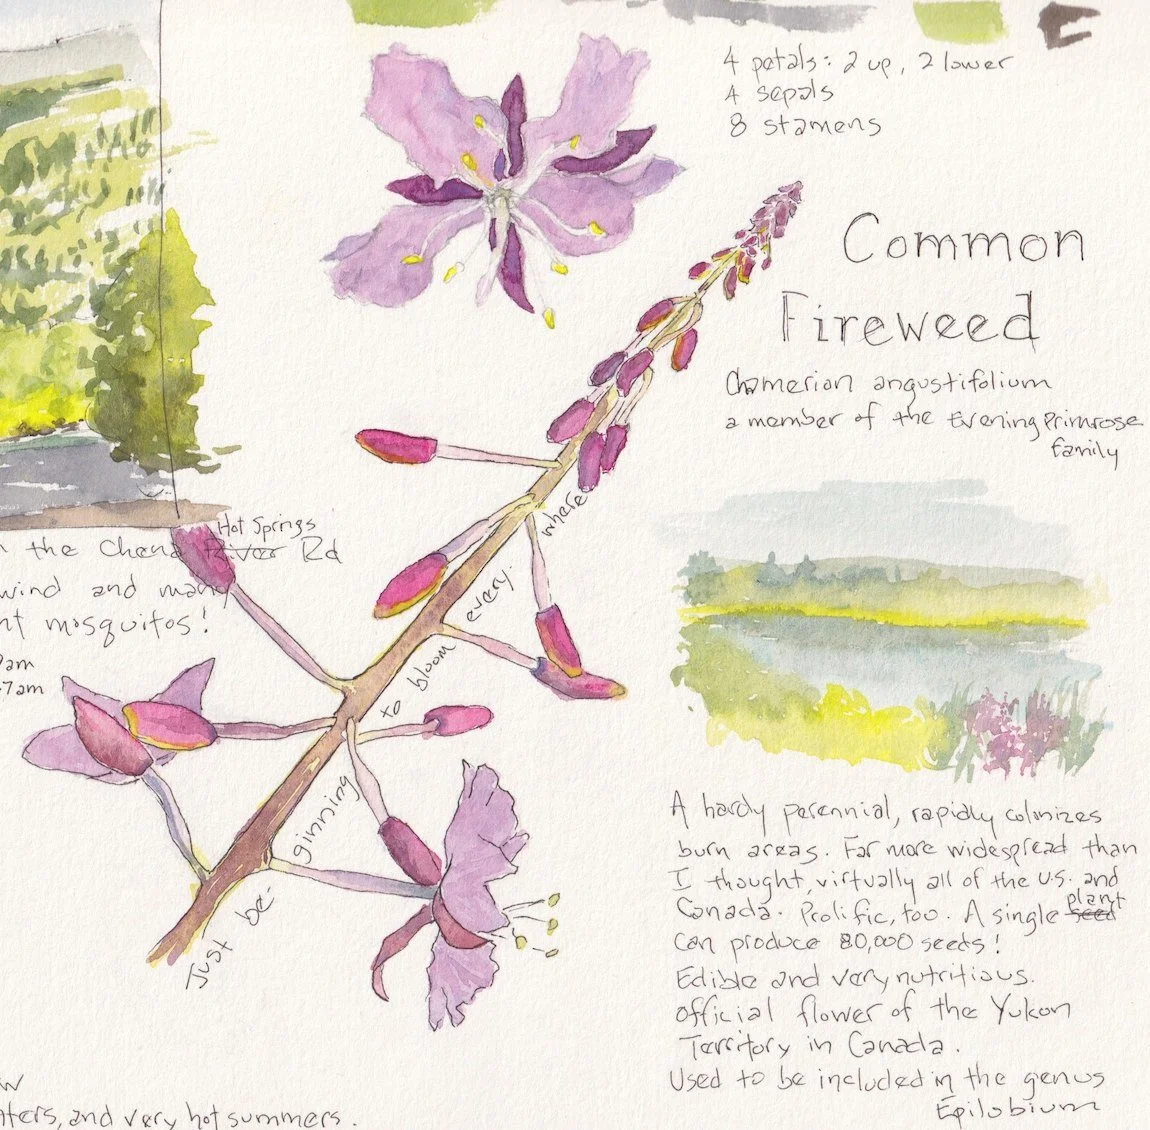 4 petals: 2 up, 2 lower
4 sepals
8 stamens
Common
Fireweed
Chamerion angustifolium
a member of the Evening Primrose
family
Just be-
ginning
to bloom
every-
where
Hot Springs
the Chena River Rd
wind and many
mosquitos!
7am
A hardy perennial, rapidly colonizes
burn areas. Far more widespread than
I thought, virtually all of the U.S. and
plant
Canada. Prolific, too. A single seed
can produce 80,000 seeds!
Edible and very nutritious.
official flower of the Yukon
Territory in Canada.
Used to be included in the genus
Epilobium
and very hot summers.